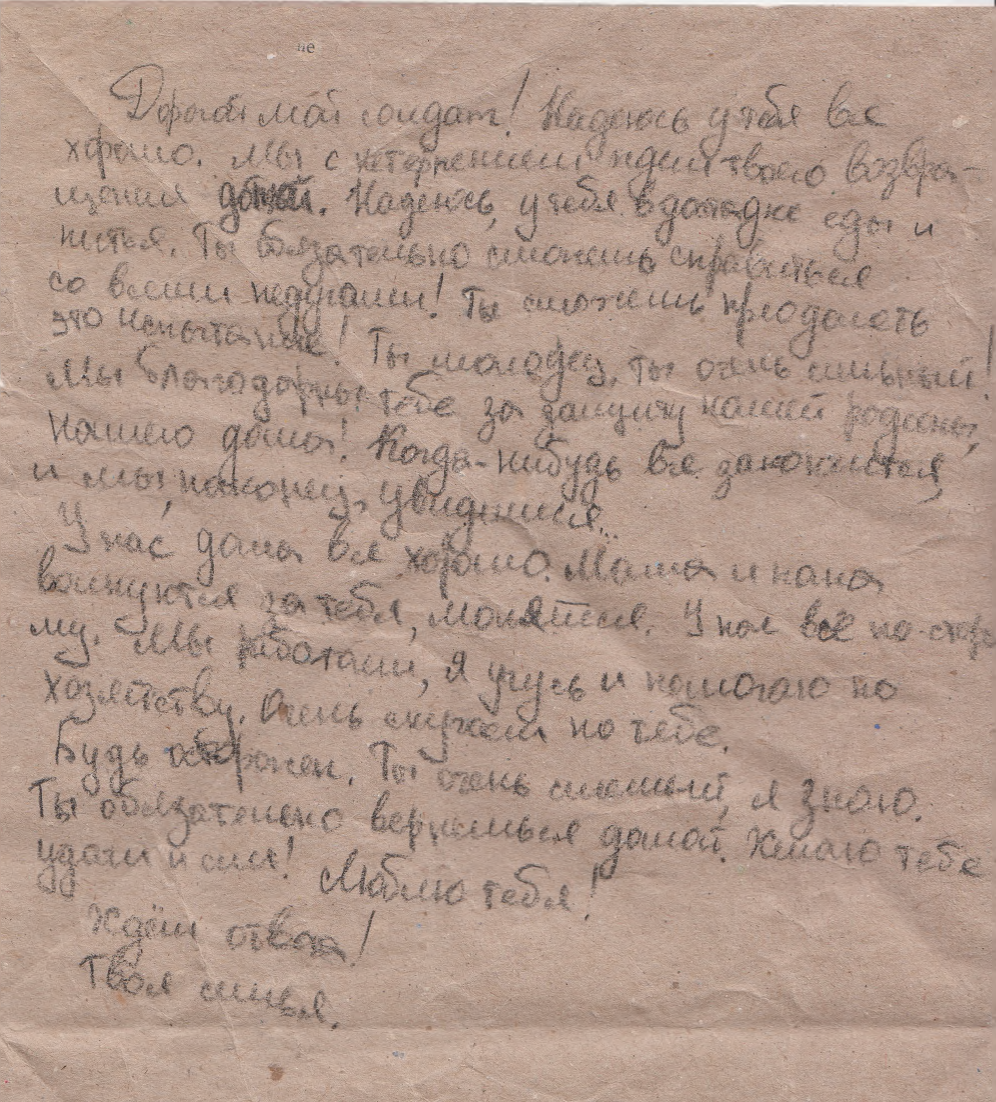 не
Дорогой мой солдат! Надеюсь у тебя все
хорошо. Мы с нетерпением ждем твоего возвра-
щения домой. Надеюсь, у тебя в достатке еды и
питья. Ты обязательно сможешь справиться
со всеми недугами! Ты сможешь преодолеть
это испытание! Ты молодец, ты очень сильный!
Мы благодарны тебе за защиту нашей родины,
нашего дома! Когда-нибудь все закончится,
и мы, наконец, увидимся...
У нас дома все хорошо. Мама и папа
волнуются за тебя, молятся. У нас всё по-старо
му. Мы работаем, я учусь и помогаю по
хозяйству. Очень скучаем по тебе.
Будь осторожен. Ты очень смелый, я знаю.
Ты обязательно вернешься домой. Желаю тебе
удачи и сил! Люблю тебя!
Ждём ответа!
Твоя семья.